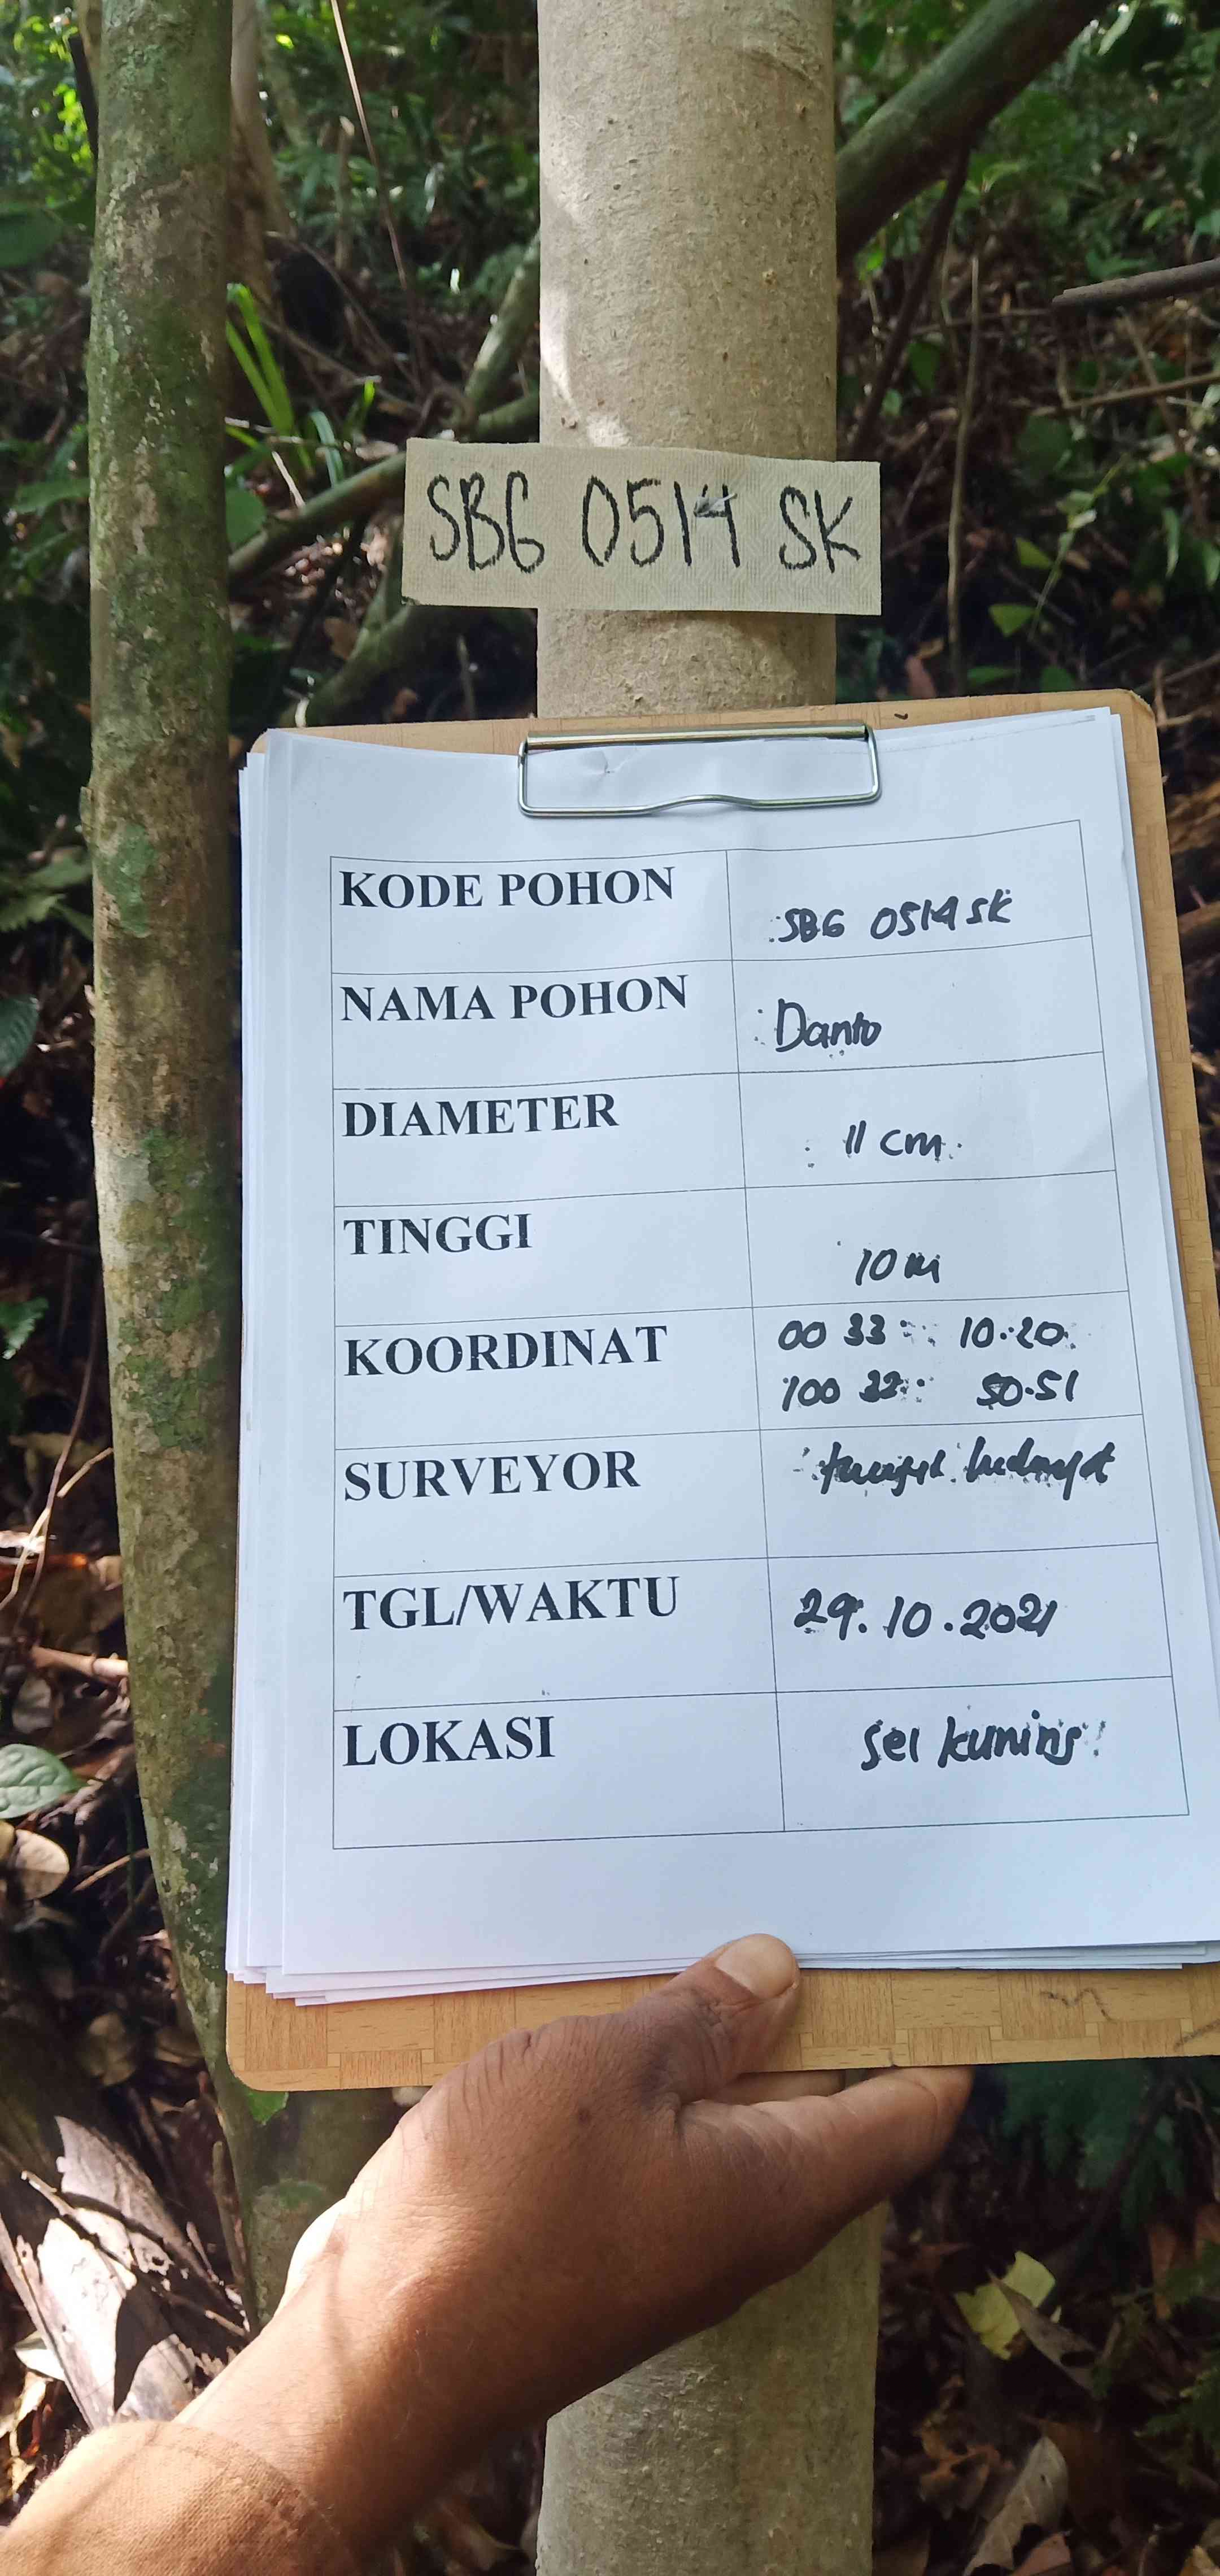 SBG 0514 SK
KODE POHON : SBG 0514 SK
NAMA POHON : Danto
DIAMETER : 11 cm.
TINGGI : 10 m
KOORDINAT 00 33 10.20
100 32 50.51
SURVEYOR :
TGL/WAKTU 29.10.2021
LOKASI sei kuning